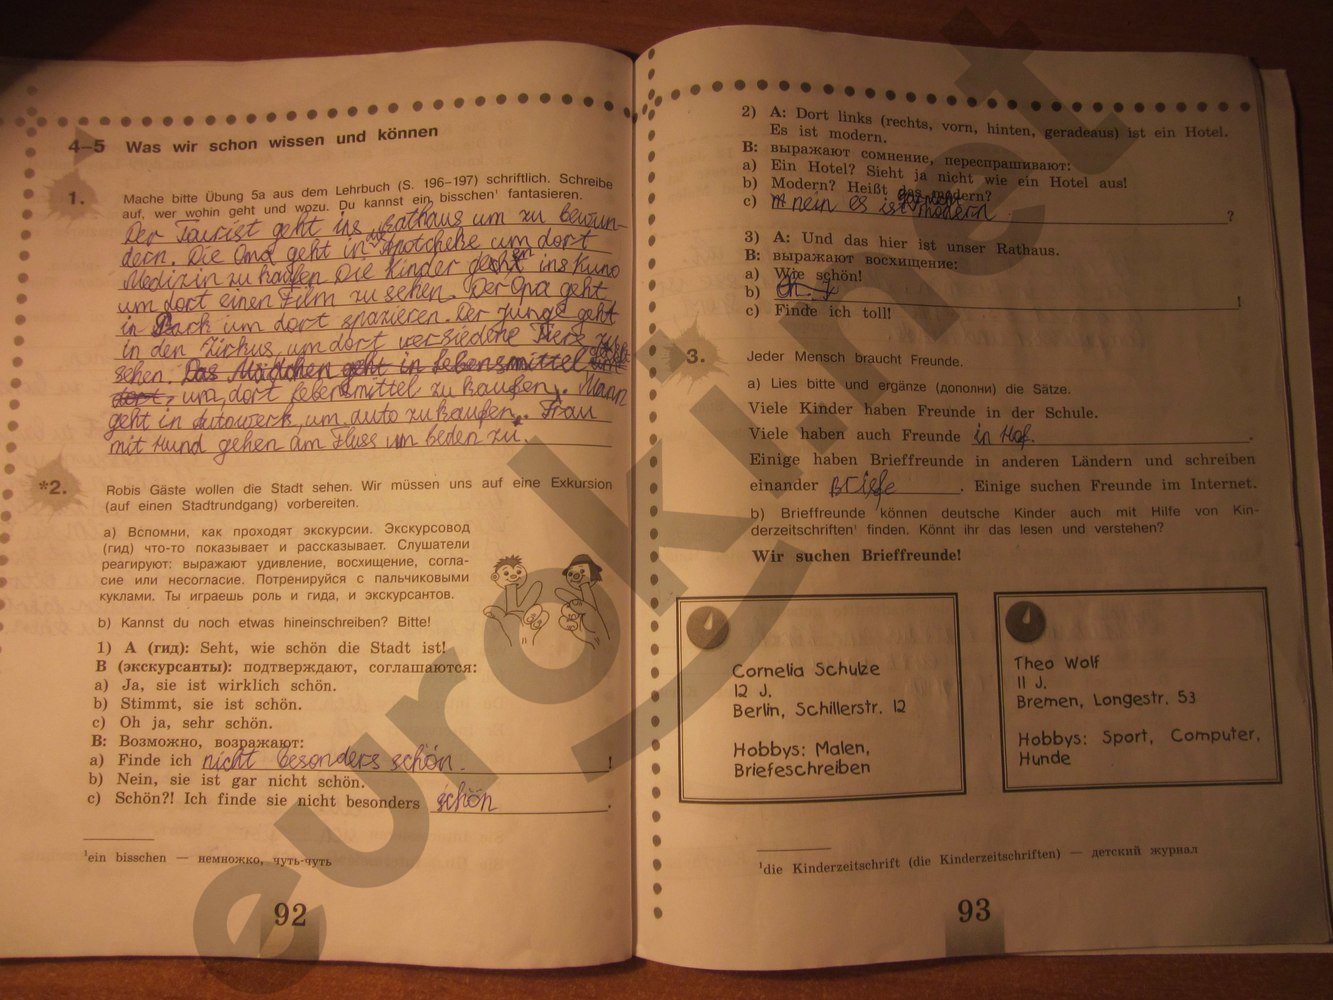 4–5 Was wir schon wissen und können
1. Mache bitte Übung 5a aus dem Lehrbuch (S. 196–197) schriftlich. Schreibe
auf, wer wohin geht und wozu. Du kannst ein bisschen¹ fantasieren.
Der Tourist geht ins Rathaus um zu bewun-
dern. Die Oma geht in Apotheke um dort
Medizin zu kaufen Die Kinder gehen ins Kino
um dort einen Film zu sehen. Der Opa geht
in Park um dort spazieren. Der Junge geht
in den Zirkus, um dort versiedene Tiere zu
sehen. Das Mädchen geht in Lebensmittel
dort, um dort Lebensmittel zu kaufen. Mann
geht in Autowerk, um Auto zu kaufen. Frau
mit Hund gehen am Fluss um beden zu.
*2. Robis Gäste wollen die Stadt sehen. Wir müssen uns auf eine Exkursion
(auf einen Stadtrundgang) vorbereiten.
a) Вспомни, как проходят экскурсии. Экскурсовод
(гид) что-то показывает и рассказывает. Слушатели
реагируют: выражают удивление, восхищение, согла-
сие или несогласие. Потренируйся с пальчиковыми
куклами. Ты играешь роль и гида, и экскурсантов.
b) Kannst du noch etwas hineinschreiben? Bitte!
1) A (гид): Seht, wie schön die Stadt ist!
B (экскурсанты): подтверждают, соглашаются:
a) Ja, sie ist wirklich schön.
b) Stimmt, sie ist schön.
c) Oh ja, sehr schön.
B: Возможно, возражают:
a) Finde ich nicht besonders schön. !
b) Nein, sie ist gar nicht schön.
c) Schön?! Ich finde sie nicht besonders schön .
¹ein bisschen — немножко, чуть-чуть
92
2) A: Dort links (rechts, vorn, hinten, geradeaus) ist ein Hotel.
Es ist modern.
B: выражают сомнение, переспрашивают:
a) Ein Hotel? Sieht ja nicht wie ein Hotel aus!
b) Modern? Heißt das modern?
c) nein es ist modern ?
3) A: Und das hier ist unser Rathaus.
B: выражают восхищение:
a) Wie schön!
b) !
c) Finde ich toll!
3. Jeder Mensch braucht Freunde.
a) Lies bitte und ergänze (дополни) die Sätze.
Viele Kinder haben Freunde in der Schule.
Viele haben auch Freunde in Hof. .
Einige haben Brieffreunde in anderen Ländern und schreiben
einander Briefe . Einige suchen Freunde im Internet.
b) Brieffreunde können deutsche Kinder auch mit Hilfe von Kin-
derzeitschriften¹ finden. Könnt ihr das lesen und verstehen?
Wir suchen Brieffreunde!
Cornelia Schulze
12 J.
Berlin, Schillerstr. 12
Hobbys: Malen,
Briefeschreiben
Theo Wolf
11 J.
Bremen, Longestr. 53
Hobbys: Sport, Computer,
Hunde
¹die Kinderzeitschrift (die Kinderzeitschriften) — детский журнал
93
euroki.net